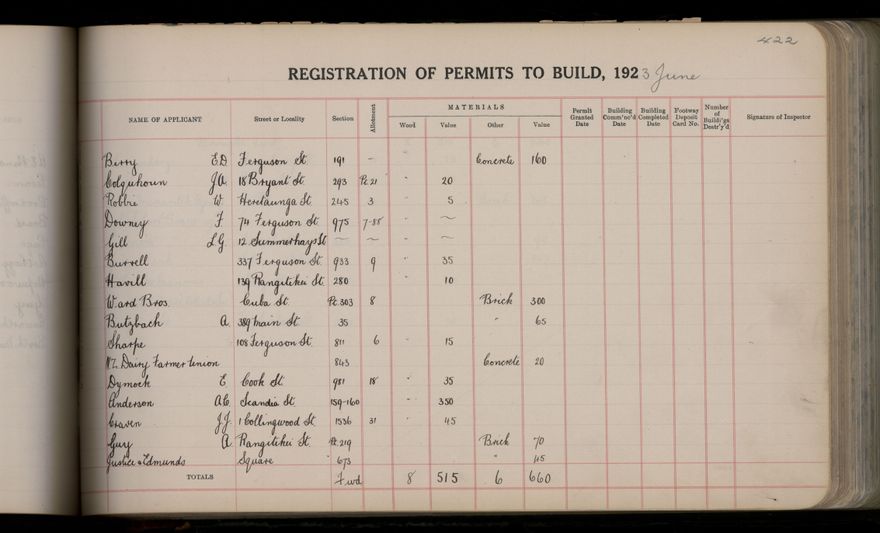 422
REGISTRATION OF PERMITS TO BUILD, 1923 June
NAME OF APPLICANT Street or Locality Section Allotment MATERIALS Wood Value Other Value Permit Granted Date Building Comm'nc'd Date Building Completed Date Footway Deposit Card No. Number of Build'gs Destr'y'd Signature of Inspector
Berry E.D Ferguson St. 191 - Concrete 160
Colquhoun J.A. 18 Bryant St. 293 Pt. 21 " 20
Robbie W. Heretaunga St. 245 3 " 5
Downey F. 74 Ferguson St. 975 7-88 " ~
Gill L.G. 12 Summerhays St ~ ~ " ~
Burrell 337 Ferguson St. 933 9 " 35
Havill 139 Rangitikei St. 280 " 10
Ward Bros. Cuba St. Pt. 303 8 Brick 300
Butzbach A. 389 Main St. 35 " 65
Sharpe 108 Ferguson St. 811 6 " 15
N.Z. Dairy Farmer Union 843 Concrete 20
Dymock E Cook St. 981 18 " 35
Anderson A.C. Scandia St. 159-160 " 350
Craven J.J. 1 Collingwood St. 1536 31 " 45
Guy A. Rangitikei St. Pt. 219 Brick 70
Justice & Edmunds Square 673 " 45
TOTALS Fwd 8 515 6 660